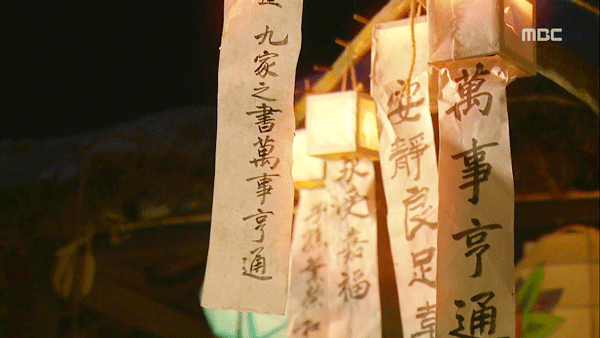 MBC
九家之書萬事亨通
嘉福
安靜良足
萬事亨通